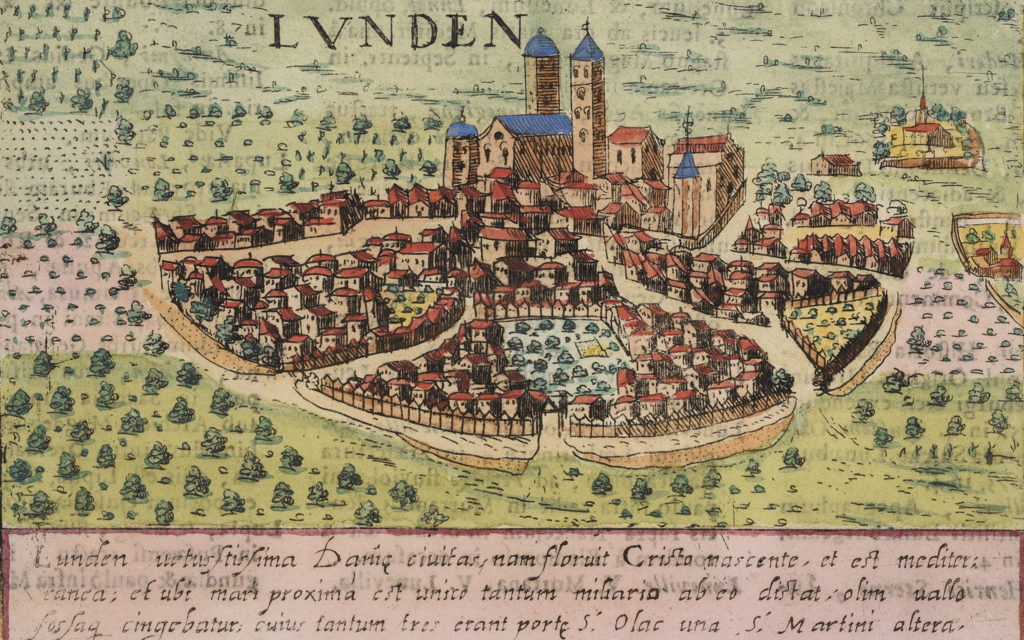 LVNDEN
Lunden uetustissima Danię ciuitas, nam floruit Cristo nascente, et est mediter:
ranea, et ubi mari proxima est unico tantum miliario ab eo distat, olim uallo
fossaq cingebatur, cuius tantum tres erant portę S. Olac una, S. Martini altera,